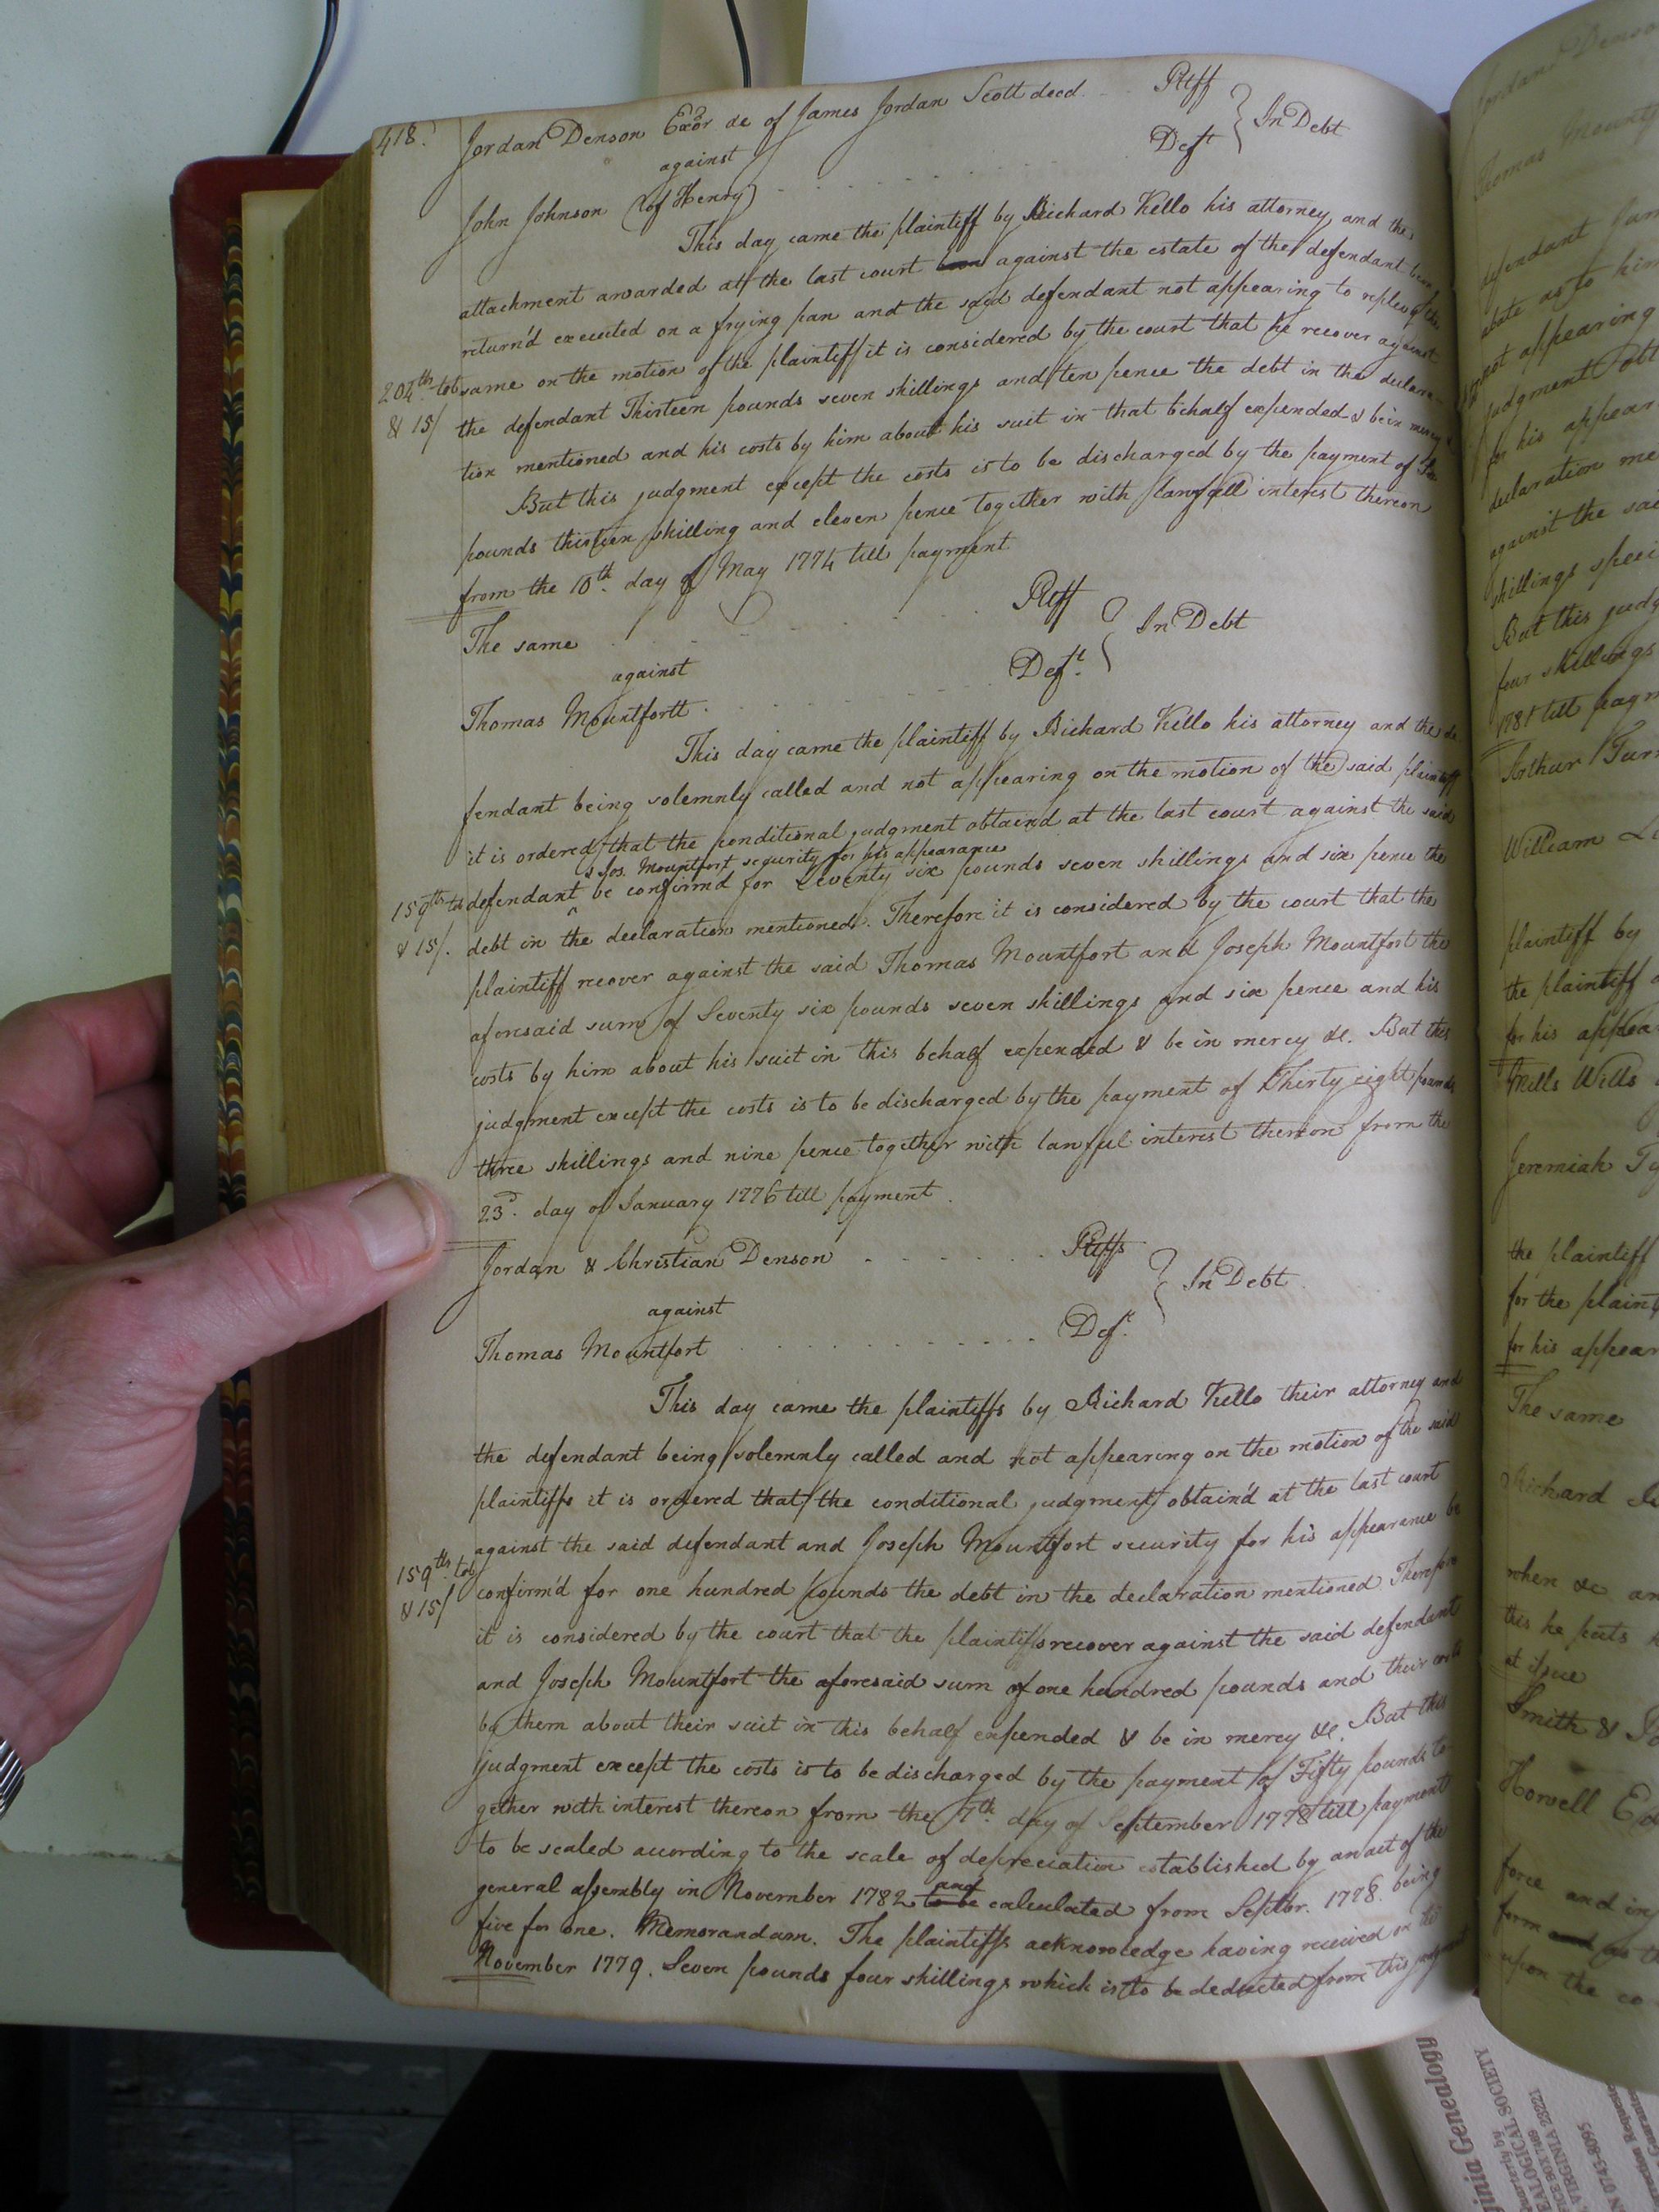 418.
Jordan Denson Exor. &c of James Jordan Scott decd. Pltff
against In Debt
John Johnson (of Henry) Deft
This day came the plaintiff by Richard Kello his attorney and the
attachment awarded at the last court against the estate of the defendant being
return'd executed on a frying pan and the said defendant not appearing to replevy the
204th. tob same on the motion of the plaintiff it is considered by the court that he recover against
& 15/ the defendant Thirteen pounds seven shillings and ten pence the debt in the declara-
tion mentioned and his costs by him about his suit in that behalf expended & be in mercy &c
But this judgment except the costs is to be discharged by the payment of Six
pounds thirteen shilling and eleven pence together with lawfull interest thereon
from the 10th. day of May 1774 till payment
The same Pltff
against In Debt
Thomas Mountfortt. Deft.
This day came the plaintiff by Richard Kello his attorney and the de
fendant being solemnly called and not appearing on the motion of the said plaintiff
it is ordered that the conditional judgment obtaind at the last court against the said
& Jos. Mountfort security for his appearance
159th tob defendant ^ be confirmd for Seventy six pounds seven shillings and six pence the
& 15/. debt in the declaration mentioned. Therefore it is considered by the court that the
plaintiff recover against the said Thomas Mountfort and Joseph Mountfort the
aforesaid sum of Seventy six pounds seven shillings and six pence and his
costs by him about his suit in this behalf expended & be in mercy &c. But this
judgment except the costs is to be discharged by the payment of Thirty eight pounds
three shillings and nine pence together with lawful interest thereon from the
23d. day of January 1776 till payment.
Jordan & Christian Denson Pltffs
against In Debt
Thomas Mountfort Deft.
This day came the plaintiffs by Richard Kello their attorney and
the defendant being solemnly called and not appearing on the motion of the said
plaintiffs it is ordered that the conditional judgment obtain'd at the last court
against the said defendant and Joseph Mountfort security for his appearance be
159th. tob confirm'd for one hundred pounds the debt in the declaration mentioned Therefore
& 15/ it is considered by the court that the plaintiffs recover against the said defendant
and Joseph Mountfort the aforesaid sum of one hundred pounds and their costs
by them about their suit in this behalf expended & be in mercy &c. But this
judgment except the costs is to be discharged by the payment of Fifty pounds to
gether with interest thereon from the 7th. day of September 1778 till payment
to be scaled according to the scale of depreciation established by an act of the
general assembly in November 1782 to be and calculated from Septbr. 1778. being
five for one. Memorandum. The plaintiffs acknowledge having received in
November 1779. Seven pounds four shillings which is to be deducted from this judgment
not appearing
judgment
for his appear
declaration me
against the sai
shillings speci
But this judg
four shillings
1781 till paym
Arthur Turn
William
plaintiff by
the plaintiff
for his appea
Mills Wills
Jeremiah
the plaintiff
for the plaint
for his appear
The same
Richard
when &c an
this he puts
at issue
Smith &
Howell
force and
form and
upon the co
inia Genealogy
LOGICAL SOCIETY
VIRGINIA 23221